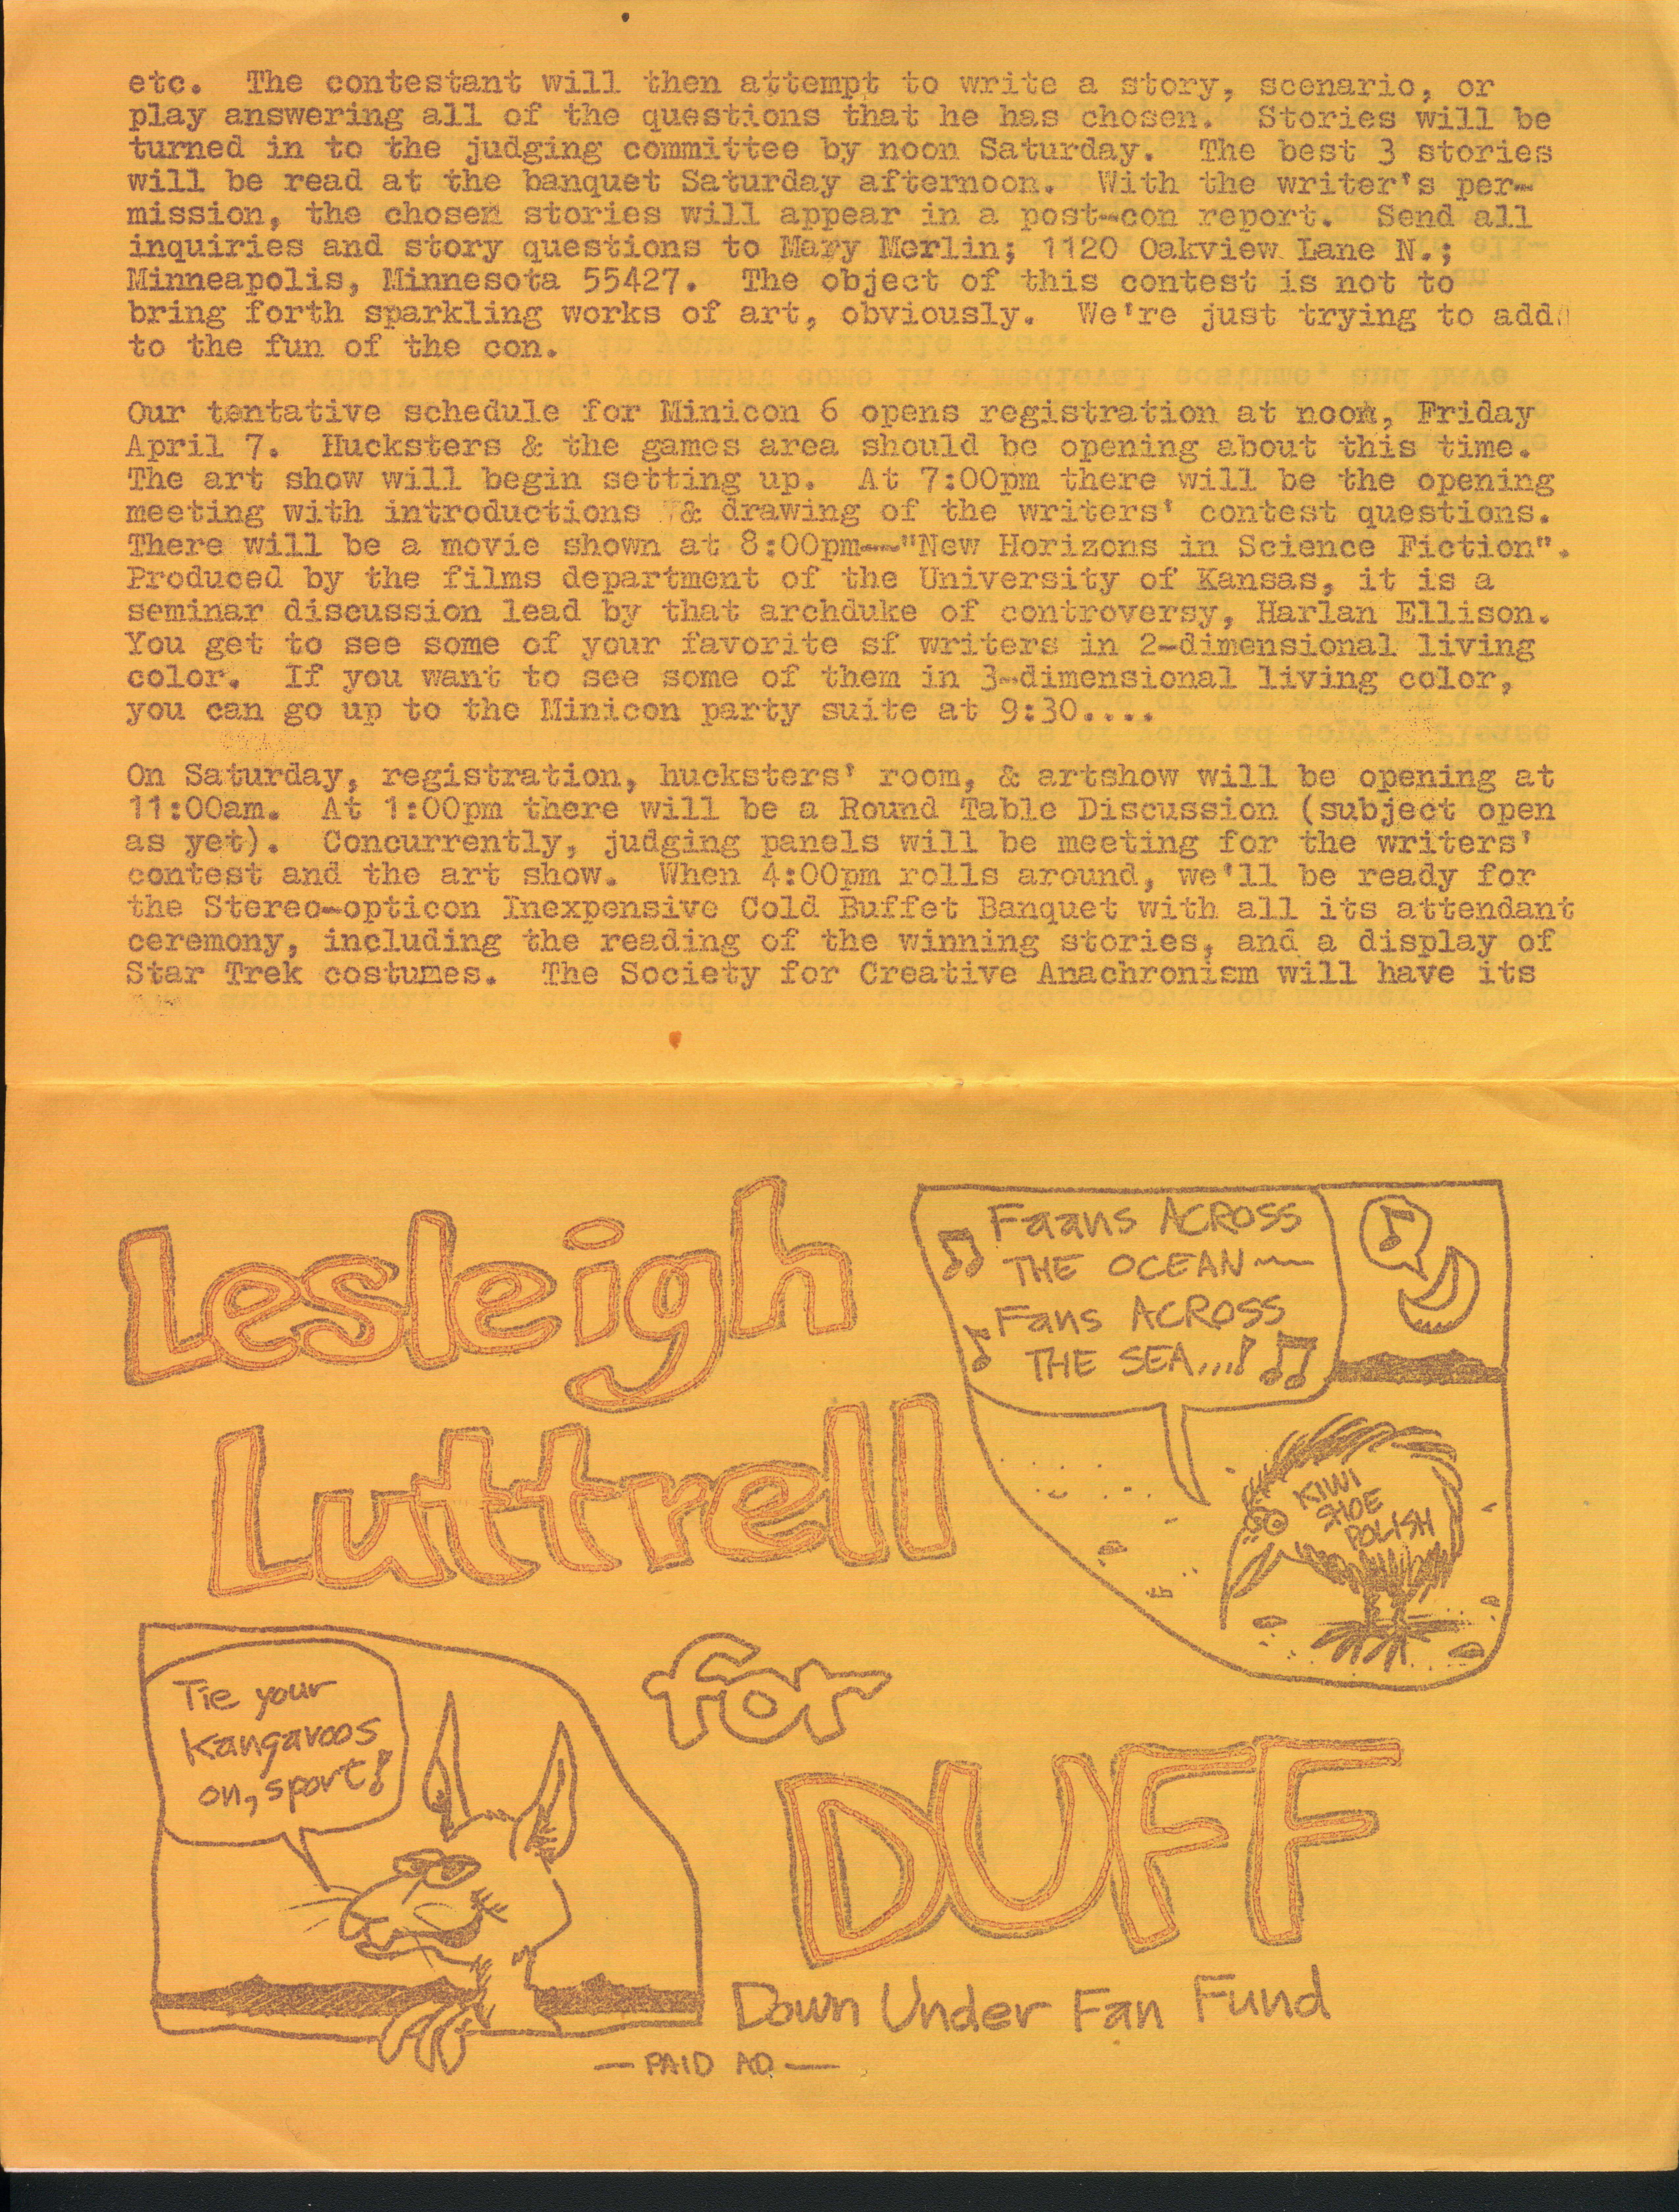 etc.  The contestant will then attempt to write a story, scenario, or
play answering all of the questions that he has chosen.  Stories will be
turned in to the judging committee by noon Saturday.  The best 3 stories
will be read at the banquet Saturday afternoon.  With the writer's per-
mission, the chosen stories will appear in a post-con report.  Send all
inquiries and story questions to Mary Merlin; 1120 Oakview Lane N.;
Minneapolis, Minnesota 55427.  The object of this contest is not to
bring forth sparkling works of art, obviously.  We're just trying to add
to the fun of the con.
Our tentative schedule for Minicon 6 opens registration at noon, Friday
April 7.  Hucksters & the games area should be opening about this time.
The art show will begin setting up.  At 7:00pm there will be the opening
meeting with introductions & drawing of the writers' contest questions.
There will be a movie shown at 8:00pm--"New Horizons in Science Fiction".
Produced by the films department of the University of Kansas, it is a
seminar discussion lead by that archduke of controversy, Harlan Ellison.
You get to see some of your favorite sf writers in 2-dimensional living
color.  If you want to see some of them in 3-dimensional living color,
you can go up to the Minicon party suite at 9:30....
On Saturday, registration, hucksters' room, & artshow will be opening at
11:00am.  At 1:00pm there will be a Round Table Discussion (subject open
as yet).  Concurrently, judging panels will be meeting for the writers'
contest and the art show.  When 4:00pm rolls around, we'll be ready for
the Stereo-opticon Inexpensive Cold Buffet Banquet with all its attendant
ceremony, including the reading of the winning stories, and a display of
Star Trek costumes.  The Society for Creative Anachronism will have its
Lesleigh
Luttrell
for
DUFF
Down Under Fan Fund
Faans ACROSS
THE OCEAN~
Fans ACROSS
THE SEA...!
KIWI
SHOE
POLISH
Tie your
Kangaroos
on, sport!
—PAID AD—